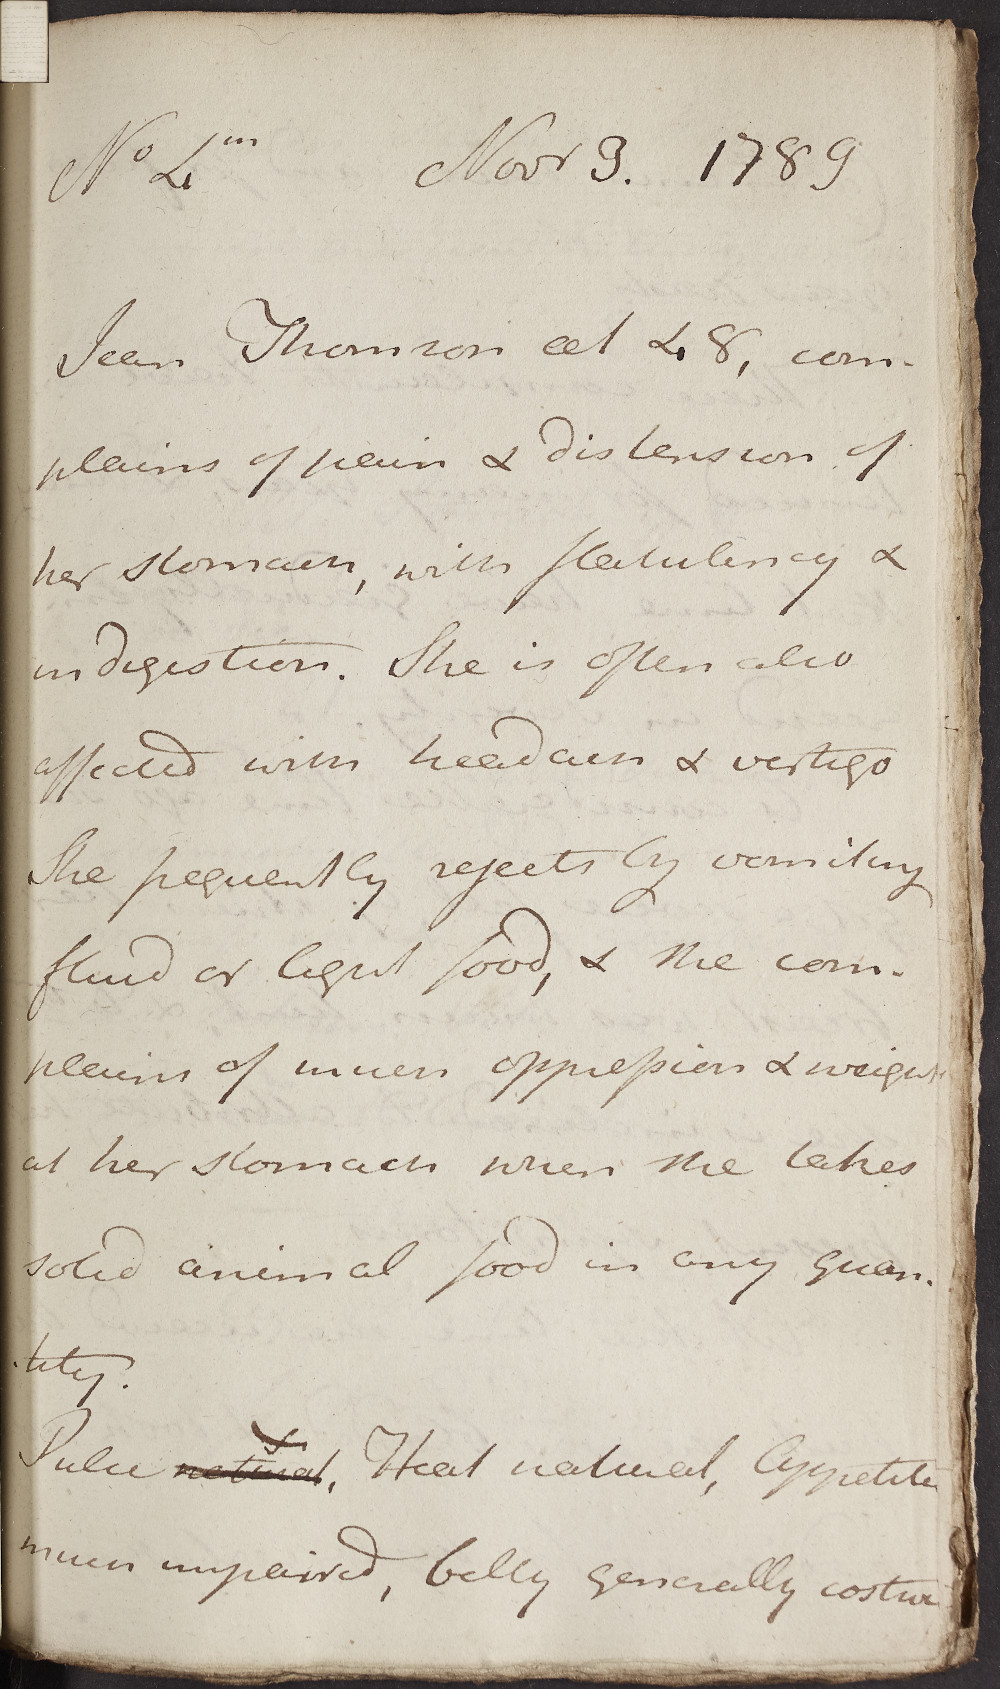 No 4m Novr 3. 1789
Jean Thomson aet 48, com-
plains of pain & distension of
her stomach, with flatulency &
indigestion. She is often also
affected with headach & vertigo
She frequently rejects by vomiting
fluid or light food, & she com-
plains of much oppression & weight
at her stomach when she takes
solid animal food in any quan-
tity.
Pulse natural, Heat natural, Appetite
much impaired, belly generally costive